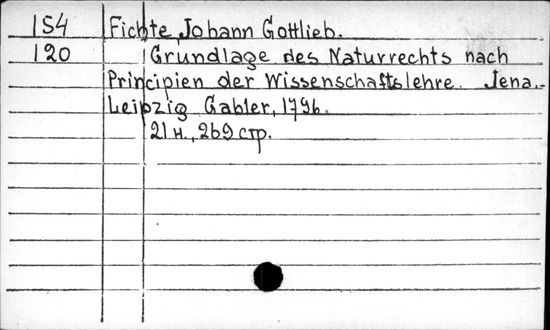 154 Fichte, Johann Gottlieb.
120 Grundlage des Naturrechts nach
Principien der Wissenschaftslehre. Jena.-
Leipzig Gabler, 1796.
21 н., 269 стр.